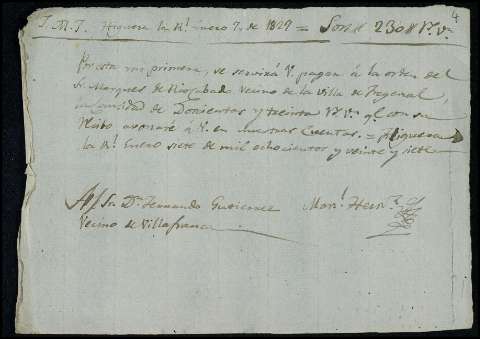 4
J. M. J. Higuera la Rl. Enero 7, de 1827 = Son 230 Rs. Vn.
Por esta mi primera, se servirá V. pagar à la orden del
Sr. Marques de Riocabado Vecino de la Villa de Fregenal,
la Cantidad de Docientos y treinta Rs. Vn. qe. con su
Recibo avonaré à V. en nuestras Cuentas. = Higuera
la Rl. Enero siete de mil echocientos y veinte y siete
Sr. Dn. Fernando Gutierrez
Manl.
Vecino de Villafranca